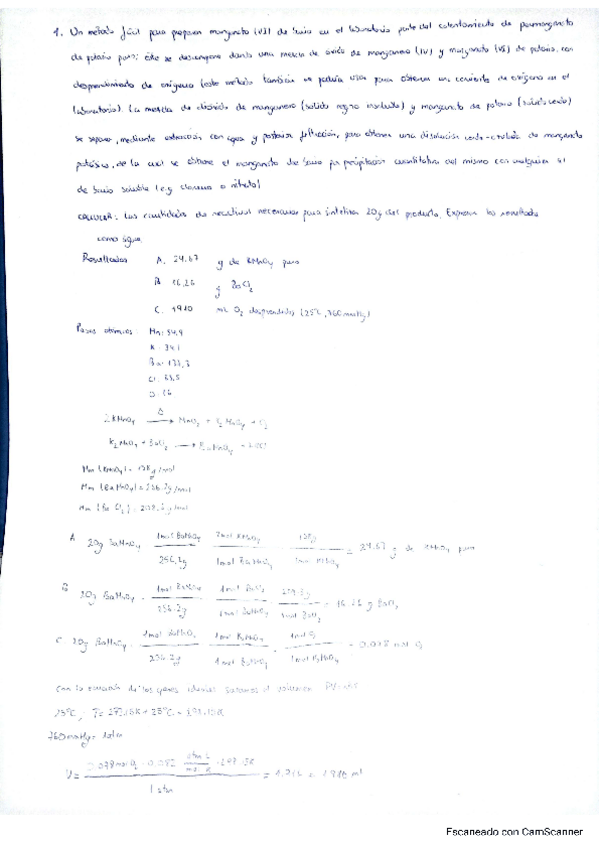 1. Un método fácil para preparar manganato (VI) de bario en el laboratorio parte del calentamiento de permanganato
de potasio puro; éste se descompone dando una mezcla de óxido de manganeso (IV) y manganato (VI) de potasio, con
desprendimiento de oxígeno (este método también se podría usar para obtener una corriente de oxígeno en el
laboratorio). La mezcla de dióxido de manganeso (sólido negro insoluble) y manganato de potasio (soluble verde)
se separa, mediante extracción con agua y posterior filtración, para obtener una disolución verde de manganato
potásico, de la cual se obtiene el manganato de bario por precipitación cuantitativa del mismo con cualquier sal
de bario soluble (e.g. cloruro o nitrato)
CALCULAR: Las cantidades de reactivos necesarios para sintetizar 20g del producto. Expresar los resultados
como sigue
Resultados A. 24.67 g de KMnO4 puro
B. 16,26 g BaCl2
C. 1910 mL O2 desprendidos (25ºC, 760mmHg)
Pesos atómicos Mn: 54,9
K: 39,1
Ba: 137,3
Cl: 35,5
O: 16
2KMnO4 Δ→ MnO2 + K2MnO4 + O2
K2MnO4 + BaCl2 → BaMnO4 + 2KCl
Mm (KMnO4) = 158 g/mol
Mm (BaMnO4) = 256.2 g/mol
Mm (BaCl2) = 208.3 g/mol
A 20g BaMnO4 · 1mol BaMnO4 / 256,2g · 2mol KMnO4 / 1mol BaMnO4 · 158g / 1mol KMnO4 = 24.67 g de KMnO4 puro
B 20g BaMnO4 · 1mol BaMnO4 / 256.2g · 1mol BaCl2 / 1mol BaMnO4 · / 1mol BaCl2 = 16.26 g BaCl2
C. 20g BaMnO4 · 1mol BaMnO4 / 256.2g · 1mol K2MnO4 / 1mol BaMnO4 · 1mol O2 / 1mol K2MnO4 = 0.078 mol O2
Con la ecuación de los gases ideales sacamos el volumen PV=nRT
25ºC; T= 273.15K + 25ºC = 298.15K
760mmHg = 1atm
V = 0.078 mol O2 · 0.082 atm L / mol K · 298.15K / 1 atm = 1.91 L = 1910 ml
Escaneado con CamScanner